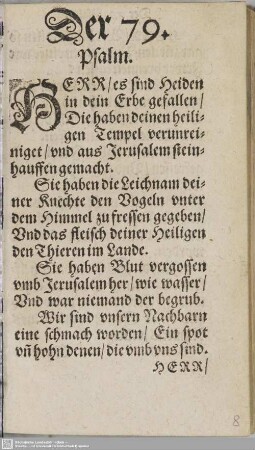 Der 79.
Psalm.
HERR/ es sind Heiden
in dein Erbe gefallen/
Die haben deinen heili-
gen Tempel verunrei-
niget/ vnd aus Jerusalem stein-
hauffen gemacht.
Sie haben die Leichnam dei-
ner Knechte den Vogeln vnter
dem Himmel zu fressen gegeben/
Vnd das fleisch deiner Heiligen
den Thieren im Lande.
Sie haben Blut vergossen
vmb Jerusalem her/ wie wasser/
Vnd war niemand der begrub.
Wir sind vnsern Nachbarn
eine schmach worden/ Ein spot
vñ hohn denen/ die vmb vns sind.
HERR/
8